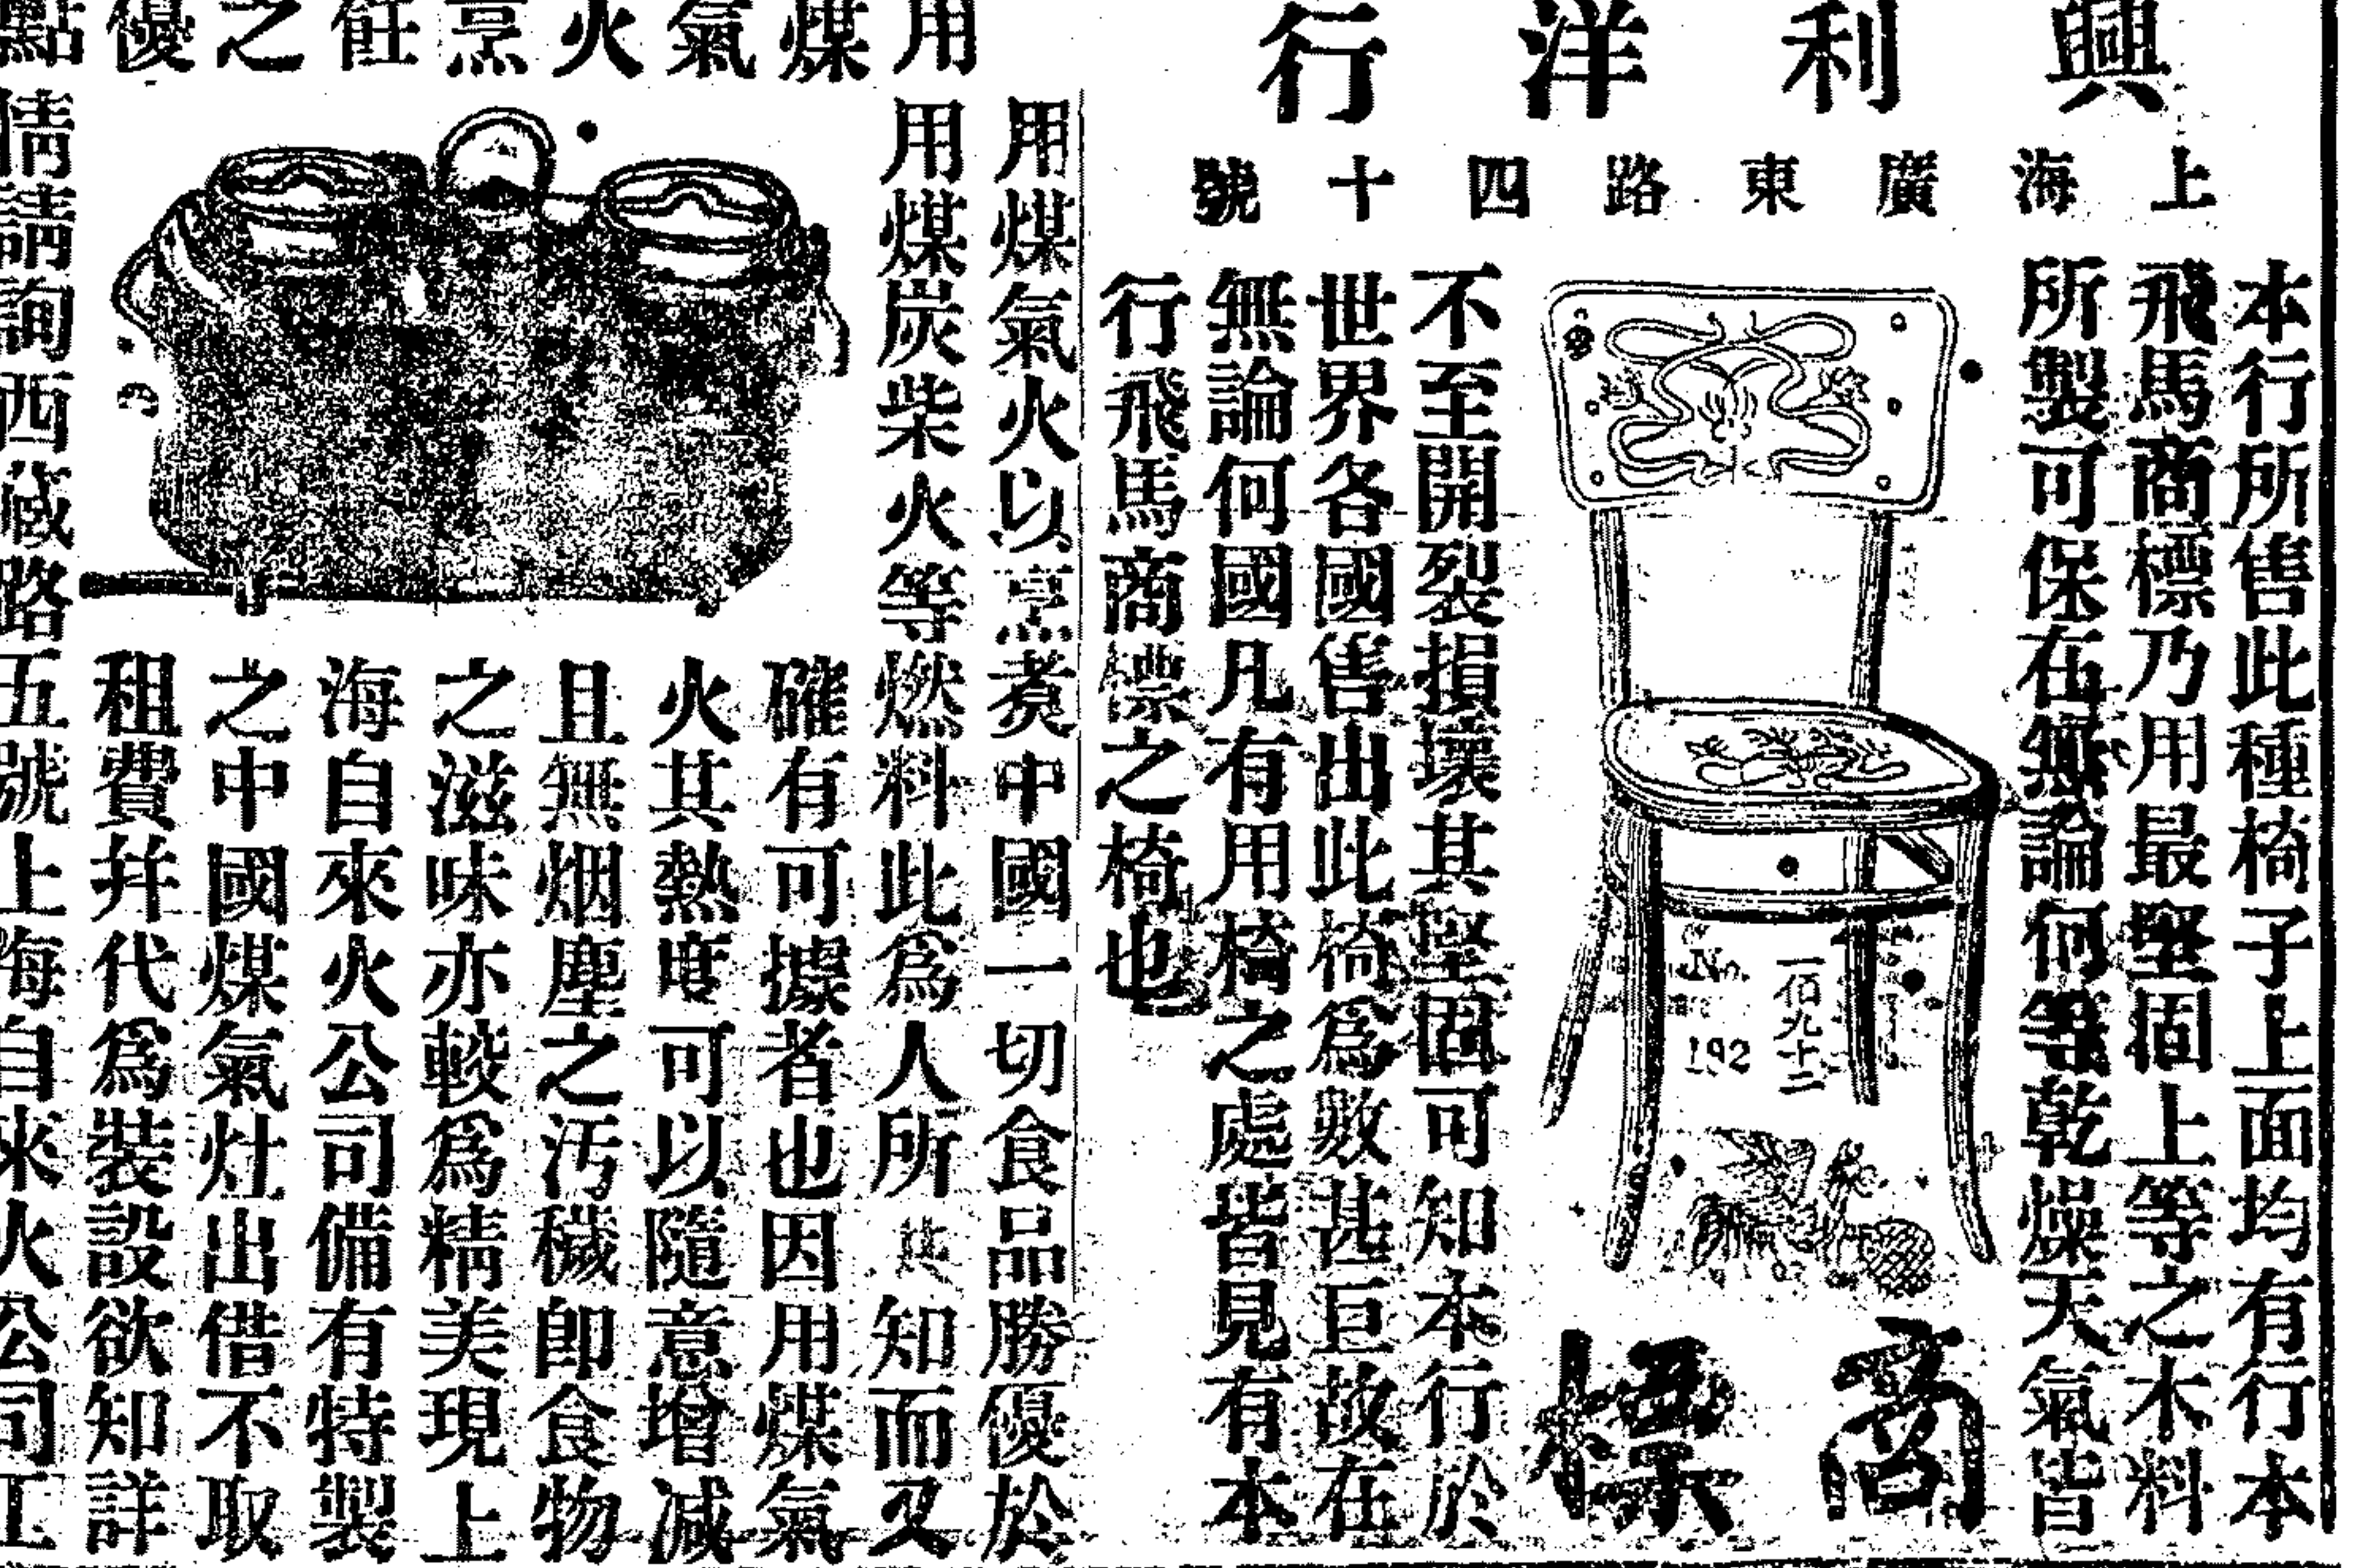 興利洋行
上海廣東路四十號
本行所售此種椅子上面均有行本
飛馬商標乃用最堅固上等之木料
所製可保在無論何等乾燥天氣皆
No. 192
一佰九十二
商標
不至開裂損壞其堅固可知本行於
世界各國售出此椅為數甚巨故在
無論何國凡有用椅之處皆見有本
行飛馬商標之椅也
用煤氣火烹飪之優點
用煤氣火以烹煑中國一切食品勝優於
用煤炭柴火等燃料此爲人所共知而又
確有可據者也因用煤氣
火其熱度可以隨意增減
且無烟塵之污穢即食物
之滋味亦較爲精美現上
海自來火公司備有特製
之中國煤氣灶出借不取
租費幷代爲裝設欲知詳
情請詢西藏路五號上海自來火公司工